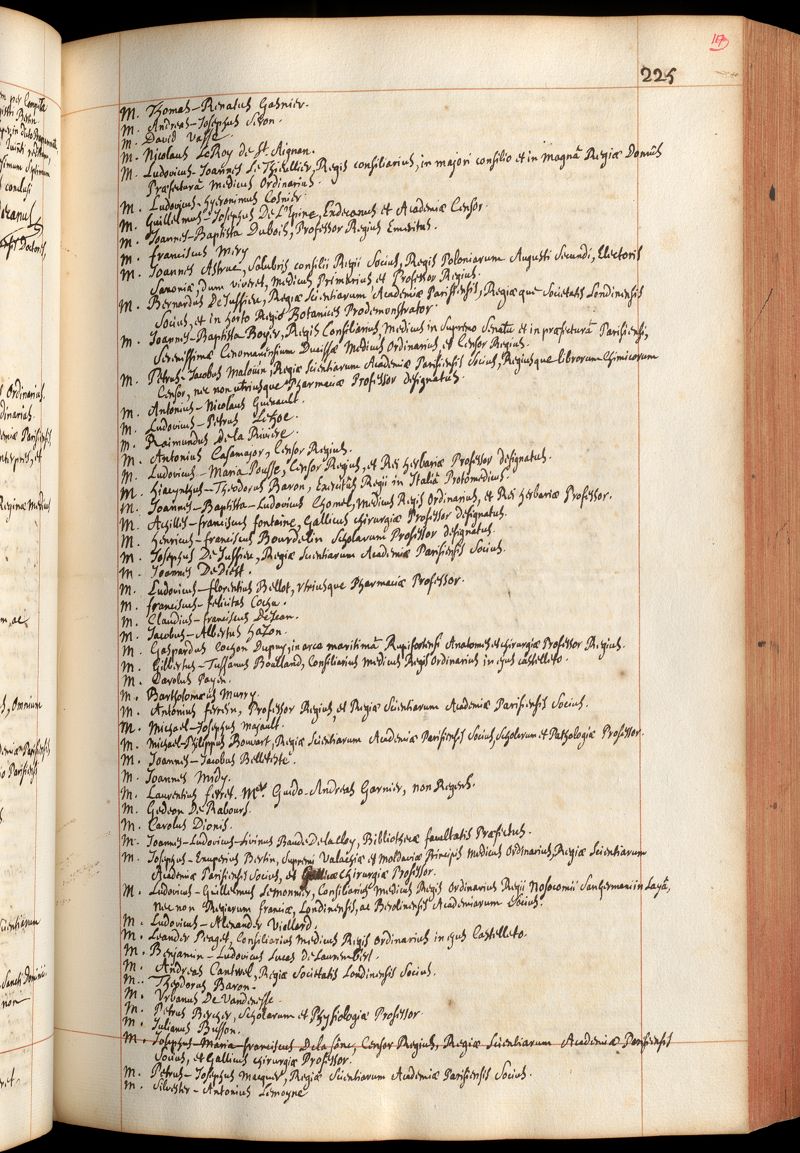 117
225
M. Thomas-Renatus Gasnier.
M. Andreas-Josephus Seron.
M. David Vasse.
M. Nicolaus LeRoy de St. Aignan.
M. Ludovicus-Joannes LeThieullier, Regis consiliarius, in majori consilio et in magnâ Regiæ Domûs
Præfecturâ Medicus Ordinarius.
M. Ludovicus-Hyeronimus Cosnier.
M. Guillelmus-Josephus De L'Epine, Exdecanus et Academiæ Censor.
M. Joannes-Baptista Dubois, Professor Regius Emeritus.
M. Franciscus Mery
M. Joannes Astruc, Salubris consilii Regii Socius, Regis Poloniarum Augusti Secundi, Electoris
Saxoniæ, dum viveret, Medicus Primarius et Professor Regius.
M. Bernardus DeJussieu, Regiæ Scientiarum Academiæ Parisiensis, Regiæque Societatis Londinensis
Socius, et in horto Regio Botanices Prodemonstrator.
M. Joannes-Baptista-Boyer, Regis Consiliarius, Medicus in Supremo Senatu et in præfecturâ Parisiensi,
Serenissimæ Cenomanensium Ducissæ Medicus Ordinarius, et Censor Regius.
M. Petrus-Jacobus Malouin, Regiæ Scientiarum Academiæ Parisiensis Socius, Regiusque librorum Chimicorum
Censor, nec non utriusque Pharmaciæ Professor designatus.
M. Antonius-Nicolaus Guenault.
M. Ludovicus-Petrus LeHoc.
M. Raimundus De la Riviere.
M. Antonius Casamajor, Censor Regius.
M. Ludovicus-Maria Pousse, Censor Regius, et Rei herbariæ Professor designatus.
M. Hiacynthus-Theodorus Baron, Exercitûs Regii in Italiâ Protomedicus.
M. Joannes-Baptista-Ludovicus Chomel, Medicus Regis Ordinarius, et Rei herbariæ Professor.
M. Achilles-franciscus fontaine, Gallicus chirurgiæ Professor designatus.
M. Henricus-franciscus Bourdelin Scholarum Professor designatus.
M. Josephus DeJussieu, Regiæ Scientiarum Academiæ Parisiensis Socius.
M. Joannes DeDiest.
M. Ludovicus-florentius Bellot, Utriusque Pharmaciæ Professor.
M. franciscus-felicitas Cochu.
M. Claudius-franciscus DeJean.
M. Jacobus-Albertus Hazon.
M. Gaspardus Cochon Dupuy, in arce maritimâ Rupifortensi Anatomes et chirurgiæ Professor Regius.
M. Gilbertus-Tussanus Boulland, Consiliarius medicus Regis Ordinarius in ejus castelleto.
M. Carolus Payen.
M. Bartholomæus Murry.
M. Antonius ferrein, Professor Regius, et Regiæ Scientiarum Academiæ Parisiensis Socius.
M. Michael-Josephus Majault.
M. Michael-Philippus Bouvart, Regiæ Scientiarum Academiæ Parisiensis Socius, Scholarum et Pathologiæ Professor.
M. Joannes-Jacobus Belleteste.
M. Joannes Midy.
M. Laurentius ferret. Mer. Guido-Andreas Garnier, non Regens.
M. Gedeon DeRabours.
M. Carolus Dionis.
M. Joannes-Ludovicus-Livinus BaudeDelaCloy, Bibliothecæ facultatis Præfectus.
M. Josephus-Exuperius Bertin, Supremi Valachiæ et Moldaviæ Principis Medicus Ordinarius, Regiæ Scientiarum
Academiæ Parisiensis Socius, et Gallicæ chirurgiæ Professor.
M. Ludovicus-Guillelmus Lemonnier, Consiliarius Medicus Regis Ordinarius Regii Nosocomii SanGermani in Layâ,
nec non Regiarum franciæ, Londinensis, ac Berolinensis Academiarum Socius.
M. Ludovicus-Alexander Viellard.
M. Leander Peaget, Consiliarius medicus Regis Ordinarius in ejus Castelleto.
M. Benjamin-Ludovicus Lucas DeLaurembert.
M. Andreas Cantwel, Regiæ Societatis Londinensis Socius.
M. Theodorus Baron.
M. Urbanus De Vandenesse.
M. Petrus Bercher, Scholarum et Physiologiæ Professor
M. Julianus Busson.
M. Josephus-Maria-franciscus De la Sône, Censor Regius, Regiæ Scientiarum Academiæ Parisiensis
Socius, et Gallicus chirurgiæ Professor.
M. Petrus-Josephus Macquer, Regiæ Scientiarum Academiæ Parisiensis Socius.
M. Silvester-Antonius Lemoyne